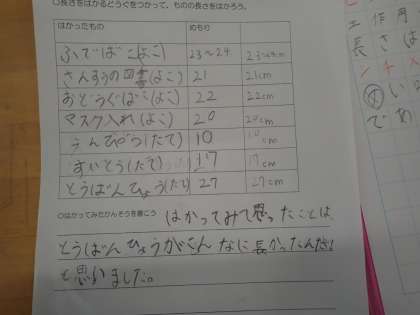 ○長さをはかるどうぐをつかって、ものの長さをはかろう。
はかったもの めもり
ふでばこ(よこ) 23〜24 23〜24cm
さんすうの図書(よこ) 21 21cm
おどうぐばこ(よこ) 22 22cm
マスク入れ(よこ) 20 20cm
えんぴつ(たて) 10 10cm
すいとう(たて) 17 17cm
とうばんひょう(たて) 27 27cm
○はかってみたかんそうを書こう
はかってみて思ったことは、
とうばんひょうがこんなに長かったんだ!
と思いました。
工作用
長さは